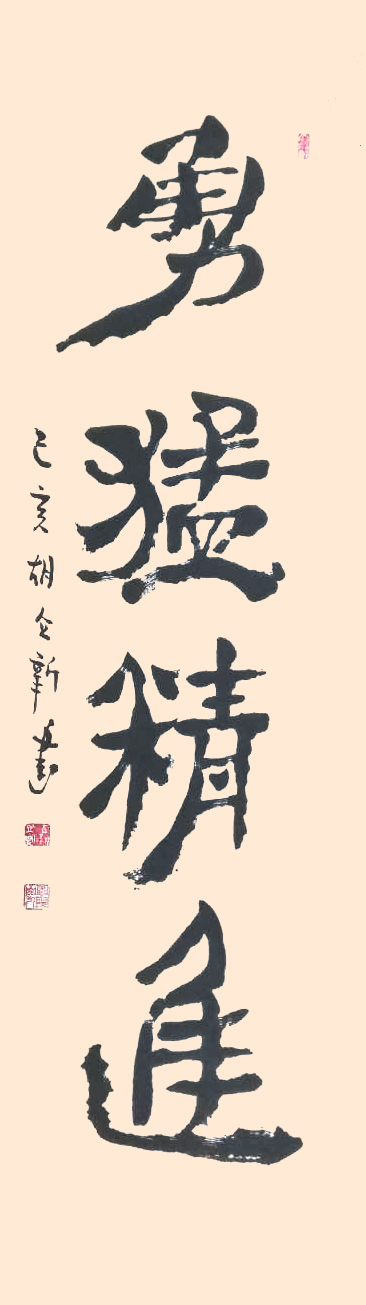 勇猛精進
己亥胡立新書